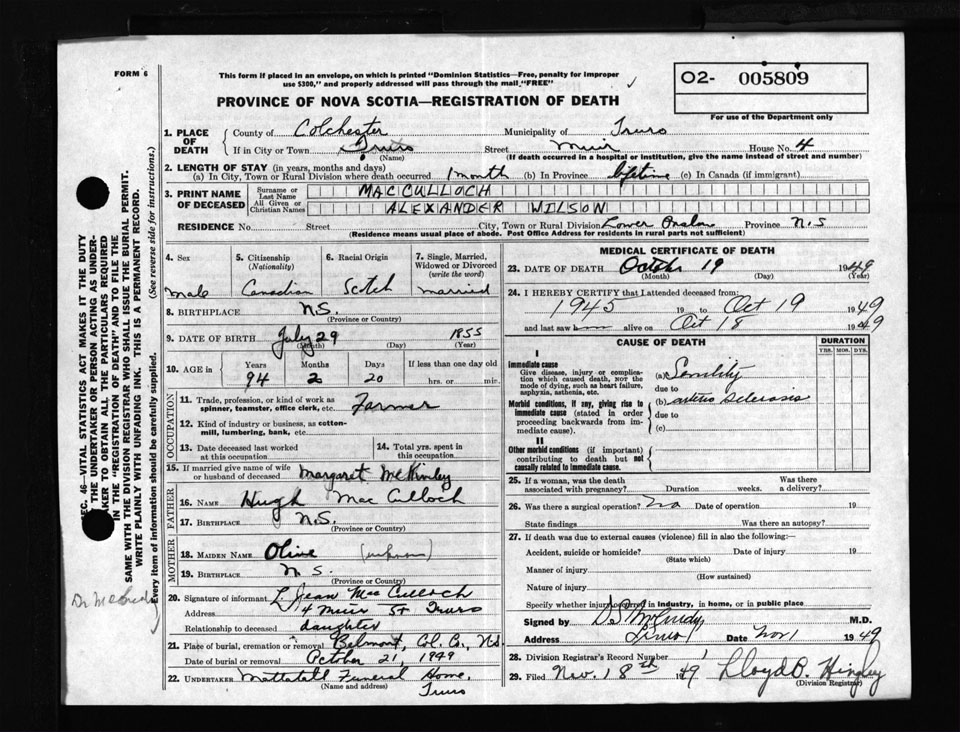 FORM 6
This form if placed in an envelope, on which is printed "Dominion Statistics—Free, penalty for improper
use $300," and properly addressed will pass through the mail "FREE"
O2- 005809
For use of the Department only
PROVINCE OF NOVA SCOTIA—REGISTRATION OF DEATH
SEC. 46—VITAL STATISTICS ACT MAKES IT THE DUTY
OF THE UNDERTAKER OR PERSON ACTING AS UNDER-
TAKER TO OBTAIN ALL THE PARTICULARS REQUIRED
IN THE "REGISTRATION OF DEATH" AND TO FILE THE
SAME WITH THE DIVISION REGISTRAR WHO SHALL ISSUE THE BURIAL PERMIT.
WRITE PLAINLY WITH UNFADING INK. THIS IS A PERMANENT RECORD.
Every item of information should be carefully supplied. (See reverse side for instructions.)
1. PLACE OF DEATH
County of Colchester Municipality of Truro
If in City or Town Truro Street Muir House No. 4
(Name) (If death occurred in a hospital or institution, give the name instead of street and number)
2. LENGTH OF STAY (in years, months and days)
(a) In City, Town or Rural Division where death occurred 1 month (b) In Province lifetime (c) In Canada (if immigrant)
3. PRINT NAME OF DECEASED
Surname or Last Name MACCULLOCH
All Given or Christian Names ALEXANDER WILSON
RESIDENCE No. Street City, Town or Rural Division Lower Onslow Province N.S
(Residence means usual place of abode. Post Office Address for residents in rural parts not sufficient)
4. Sex male
5. Citizenship (Nationality) Canadian
6. Racial Origin Scotch
7. Single, Married, Widowed or Divorced (write the word) married
8. BIRTHPLACE N.S.
(Province or Country)
9. DATE OF BIRTH July 29 1855
(Month) (Day) (Year)
10. AGE IN Years 94 Months 2 Days 20 If less than one day old hrs. or min.
OCCUPATION
11. Trade, profession, or kind of work as spinner, teamster, office clerk, etc. Farmer
12. Kind of industry or business, as cotton-mill, lumbering, bank, etc.
13. Date deceased last worked at this occupation
14. Total yrs. spent in this occupation
15. If married give name of wife or husband of deceased Margaret McKinley
FATHER
16. NAME Hugh MacCulloch
17. BIRTHPLACE N.S.
(Province or Country)
MOTHER
18. MAIDEN NAME Olive (unknown)
19. BIRTHPLACE N.S.
(Province or Country)
20. Signature of informant L. Jean MacCulloch
Address 4 Muir St Truro
Relationship to deceased daughter
21. Place of burial, cremation or removal Belmont, Col. Co., N.S.
Date of burial or removal October 21, 1949
22. UNDERTAKER Mattatall Funeral Home,
(Name and address) Truro
MEDICAL CERTIFICATE OF DEATH
23. DATE OF DEATH October 19 1949
(Month) (Day) (Year)
24. I HEREBY CERTIFY that I attended deceased from:
1945 19 to Oct 19 1949
and last saw him alive on Oct 18 1949
CAUSE OF DEATH
DURATION
YRS. MOS. DYS.
I
Immediate cause
Give disease, injury or complication which caused death, not the mode of dying, such as heart failure, asphyxia, asthenia, etc.
(a) Senility
due to
Morbid conditions, if any, giving rise to immediate cause (stated in order proceeding backwards from immediate cause).
(b) arterio sclerosis
due to
(c)
II
Other morbid conditions (if important) contributing to death but not causally related to immediate cause.
25. If a woman, was the death associated with pregnancy? Duration weeks. Was there a delivery?
26. Was there a surgical operation? no Date of operation 19
State findings Was there an autopsy?
27. If death was due to external causes (violence) fill in also the following:
Accident, suicide or homicide? Date of injury 19
(State which)
Manner of injury
(How sustained)
Nature of injury
Specify whether injury occurred in industry, in home, or in public place
Signed by D.S. McCurdy M.D.
Address Truro Date Nov 1 1949
28. Division Registrar's Record Number
29. Filed Nov. 18th 1949 Lloyd B. Hingley
(Division Registrar)
Dr McCurdy